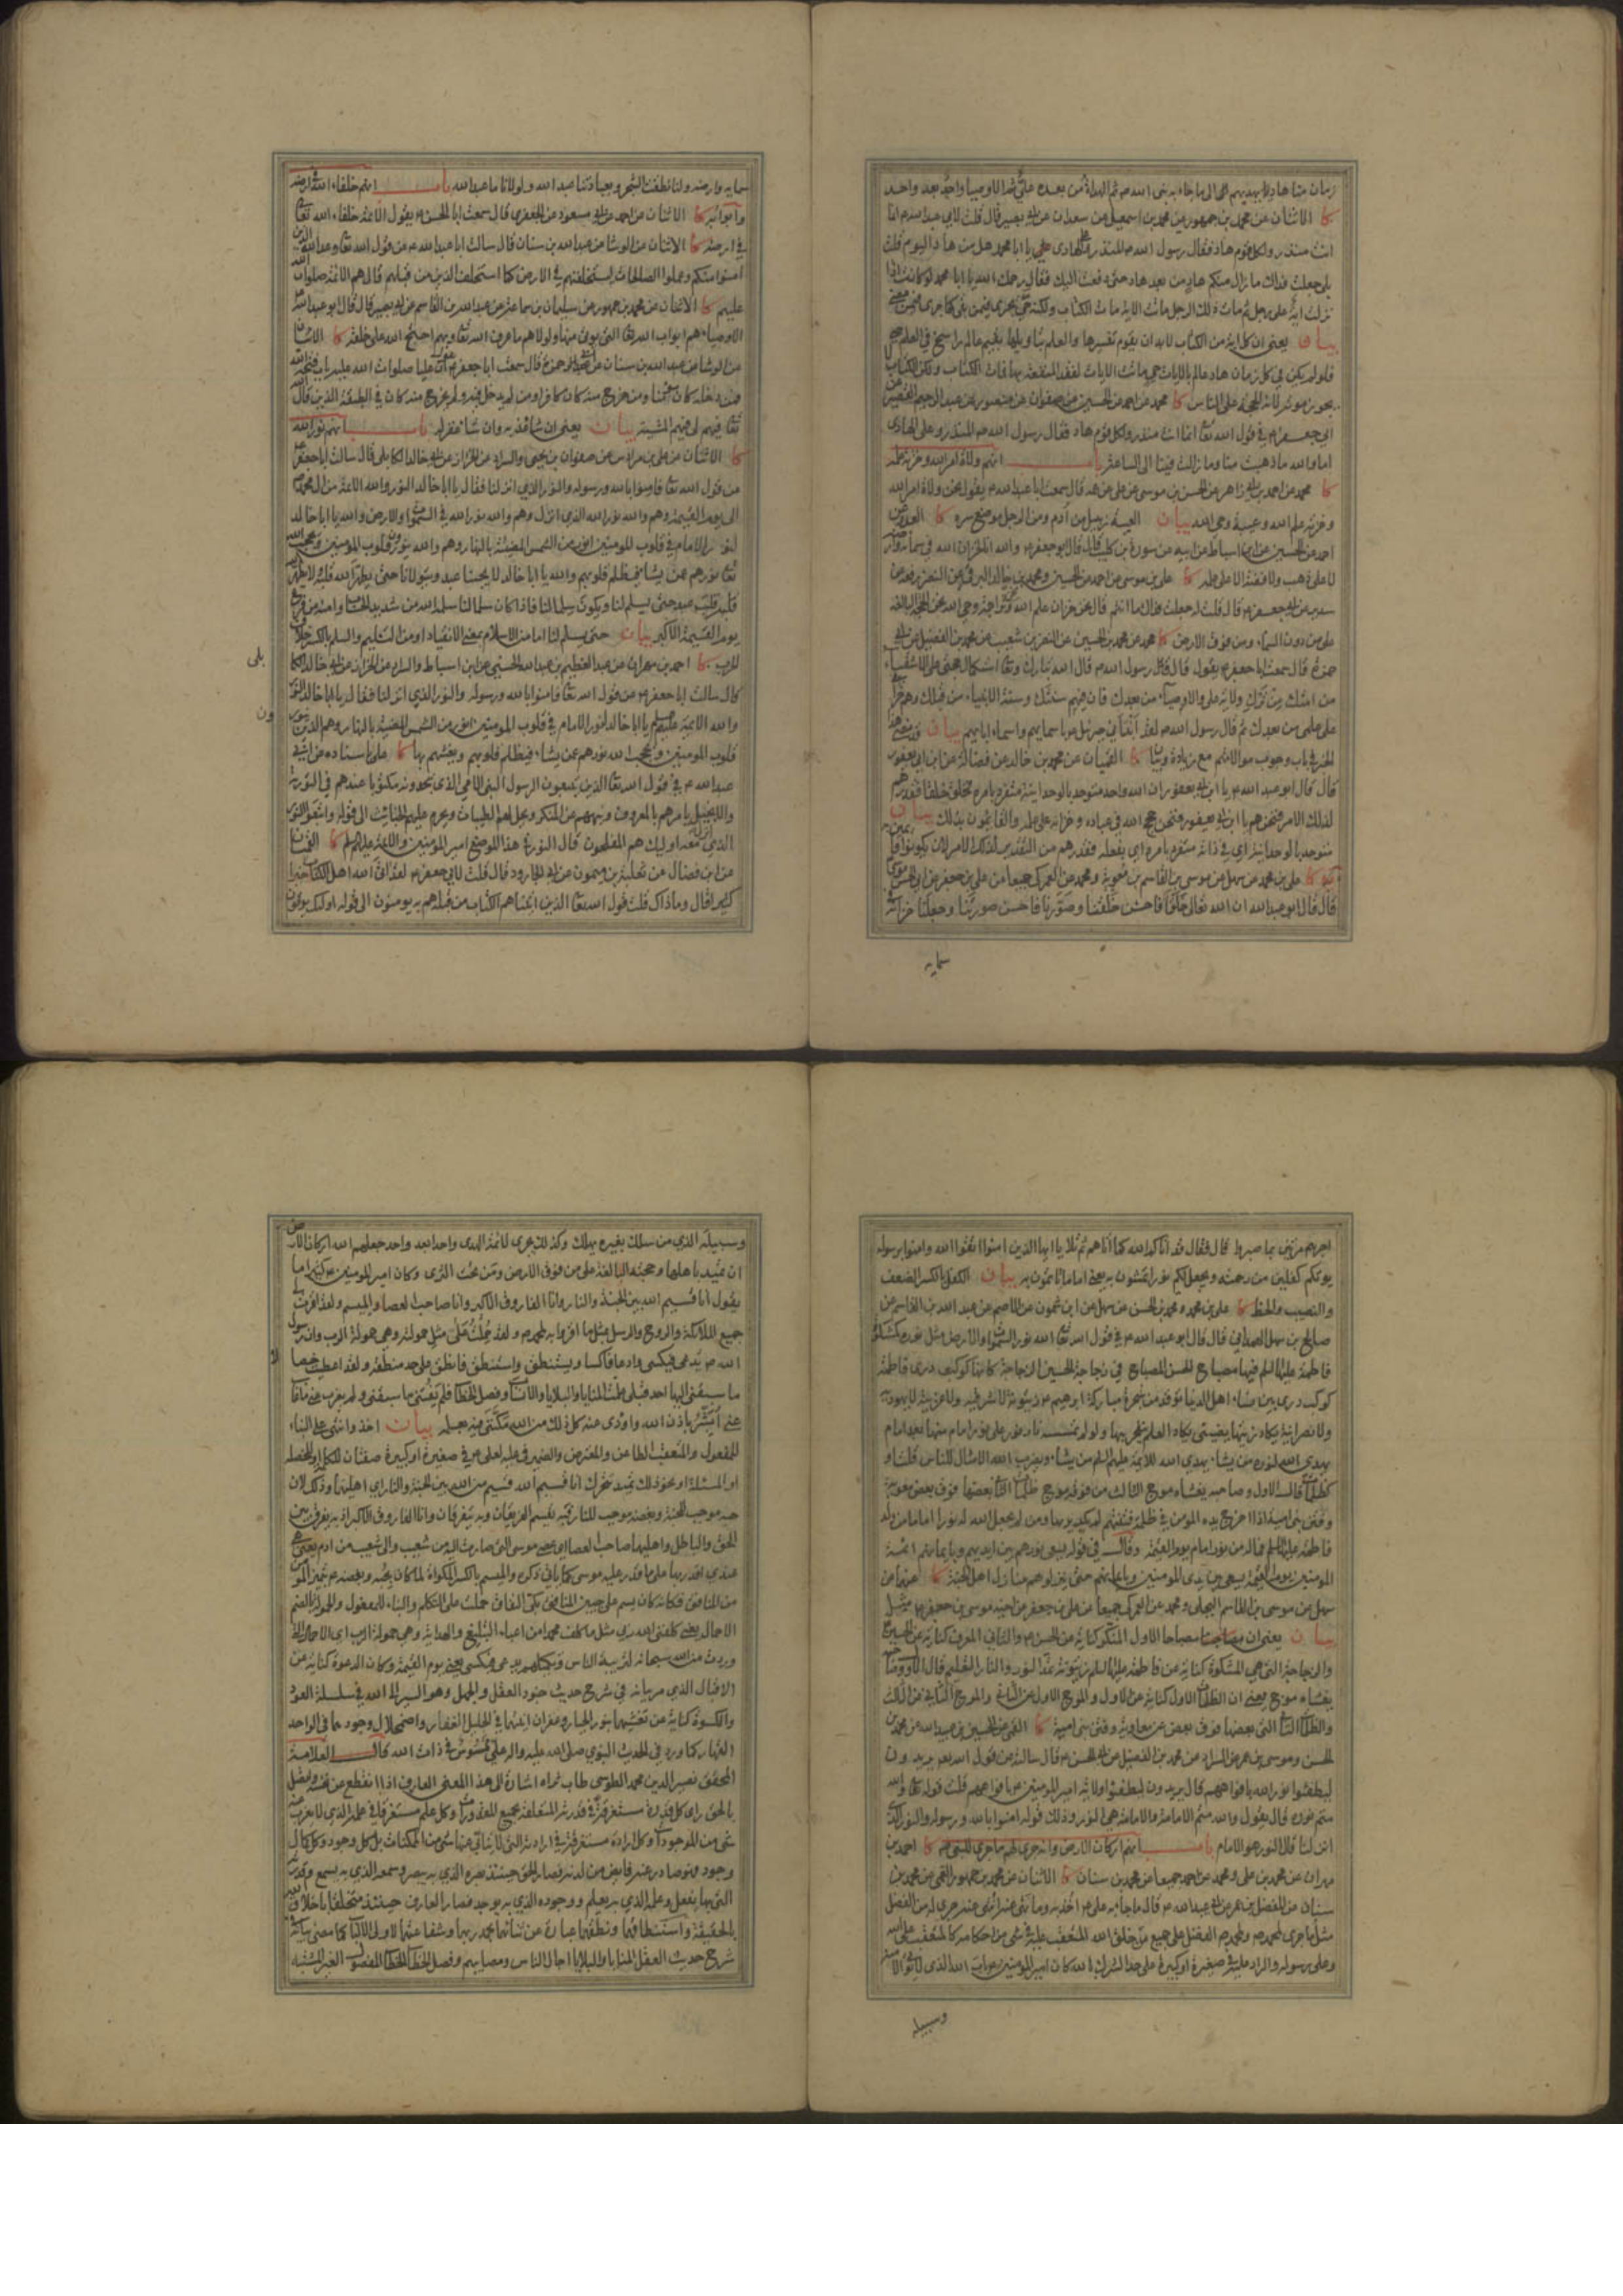 زمان منا هاديا يهديهم الى ما جاء به نبي الله ص ثم الهداة من بعده علي ثم الاوصيا واحد بعد واحد
كا الاثنان عن محمد بن جمهور عن محمد بن اسمعيل عن سعدان عن ابي بصير قال قلت لابي عبدالله ع انما
انت منذر ولكل قوم هاد فقال رسول الله ص المنذر وعلي الهادي يا ابا محمد هل من هاد اليوم قلت
بلى جعلت فداك ما زال منكم هاد من بعد هاد حتى دفعت اليك فقال رحمك الله يا ابا محمد لو كانت اذا
نزلت اية على رجل ثم مات ذلك الرجل ماتت الاية مات الكتاب ولكنه حي يجري فيمن بقي كما جرى فيمن مضى
بيان يعني ان كل اية من الكتاب لا بد ان يقوم تفسيرها والعلم بتاويلها بقيم عالم راسخ في العلم حي
فلو لم يكن في كل زمان هاد عالم بالايات حي ماتت الايات لفقد المنفعة بها فمات الكتاب ولكن الكتاب
لا يجوز موته لانه الحجة على الناس كا محمد عن احمد عن الحسين عن صفوان عن منصور عن عبد الرحيم القصير عن
ابي جعفر ع في قول الله تعا انما انت منذر ولكل قوم هاد فقال رسول الله ص المنذر وعلي الهادي
اما والله ما ذهبت منا وما زالت فينا الى الساعة باب انهم ولاة امر الله وخزنة علمه
كا محمد عن احمد بن ابي زاهر عن الحسن بن موسى عن علي عن عمه قال سمعت ابا عبدالله ع يقول نحن ولاة امر الله
وخزنة علم الله وعيبة وحي الله بيان العيبة زبيل من ادم ومن الرجل موضع سره كا العدة عن
احمد عن الحسين عن ابن اسباط عن ابيه عن سورة بن كليب قال قال ابو جعفر ع والله انا لخزان الله في سمائه وارضه
لا على ذهب ولا فضة الا على علمه كا علي بن موسى عن احمد عن الحسين ومحمد بن خالد البرقي عن النضر رفعه عن
سدير عن ابي جعفر ع قال قلت له جعلت فداك ما انتم قال نحن خزان علم الله ونحن تراجمة وحي الله نحن الحجة البالغة
على من دون السماء ومن فوق الارض كا محمد عن محمد بن الحسين عن النضر بن شعيب عن محمد بن الفضيل عن ابي
حمزة قال سمعت ابا جعفر ع يقول قال رسول الله ص قال الله تبارك وتعا استكمال حجتي على الاشقياء
من امتك من ترك ولاية علي والاوصياء من بعدك فان فيهم سنتك وسنة الانبياء من قبلك وهم خزاني
على علمي من بعدك ثم قال رسول الله ص لقد انباني جبرئيل ع باسمائهم واسماء ابائهم بيان قد مضى هذا
الخبر في باب وجوب موالاتهم مع زيادة وبيان كا القميان عن محمد بن خالد عن فضالة عن ابن ابي يعفور
قال قال ابو عبد الله ع يا ابن ابي يعفور ان الله واحد متوحد بالوحدانية متفرد بامره فخلق خلقا فقدرهم
لذلك الامر فنحن هم يا ابن ابي يعفور فنحن حجج الله في عباده وخزانه على علمه والقائمون بذلك بيان
متوحد بالوحدانية اي في ذاته متفرد بامره اي بفعله فقدرهم من التقدير لذلك الامر لان يكونوا قائمين
به كا علي بن محمد عن سهل عن موسى بن القاسم بن معوية ومحمد عن العمركي جميعا عن علي بن جعفر عن ابي الحسن موسى
قال قال ابو عبدالله ان الله تعالى خلقنا فاحسن خلقنا وصورنا فاحسن صورنا وجعلنا خزانه
سمايه
سمايه وارضه ولنا نطقت الشجر وبعبادتنا عبد الله ولولانا ما عبد الله باب انهم خلفاء الله في ارضه
وابوابه كا الاثنان عن احمد عن ابي مسعود عن الجعفري قال سمعت ابا الحسن ع يقول الائمة خلفاء الله تعا
في ارضه كا الاثنان عن الوشا عن عبدالله بن سنان قال سالت ابا عبدالله ع عن قول الله تعا وعد الله الذين
امنوا منكم وعملوا الصالحات ليستخلفنهم في الارض كما استخلف الذين من قبلهم قال هم الائمة صلوات الله
عليهم كا الاثنان عن محمد بن جمهور عن سليمان بن سماعة عن عبدالله بن القاسم عن ابي بصير قال قال ابو عبدالله ع
الاوصياء هم ابواب الله تعا التي يوتى منها ولولاهم ما عرف الله تعا وبهم احتج الله على خلقه كا الاثنان
عن الوشا عن عبدالله بن سنان عن ابي حمزة قال سمعت ابا جعفر ع يقول ان عليا صلوات الله عليه باب فتحه الله
فمن دخله كان مؤمنا ومن خرج منه كان كافرا ومن لم يدخل فيه ولم يخرج منه كان في الطبقة الذين قال الله
تعا فيهم لي فيهم المشية بيان يعني ان شا عذبه وان شا غفر له باب انهم نور الله
كا الاثنان عن علي بن مرداس عن صفوان بن يحيى والسراد عن الخزاز عن ابي خالد الكابلي قال سالت ابا جعفر ع
عن قول الله تعا فامنوا بالله ورسوله والنور الذي انزلنا فقال يا ابا خالد النور والله الائمة من ال محمد ص
الى يوم القيمة وهم والله نور الله الذي انزل وهم والله نور الله في السموات والارض والله يا ابا خالد
لنور الامام في قلوب المومنين انور من الشمس المضيئة بالنهار وهم والله ينورون قلوب المومنين ويحجب الله
تعا نورهم عمن يشا فيظلم قلوبهم والله يا ابا خالد لا يحبنا عبد ويتولانا حتى يطهر الله قلبه ولا يطهر الله
قلب عبد حتى يسلم لنا ويكون سلما لنا فاذا كان سلما لنا سلمه الله من شديد الحساب وامنه من فزع
يوم القيمة الاكبر بيان حتى يسلم لنا اما من الاسلام بمعنى الانقياد او من التسليم والسلم بالكسر خلاف
الحرب كا احمد بن مهران عن عبد العظيم بن عبدالله الحسني عن ابن اسباط والسراد عن الخزاز عن ابي خالد الكا
بلى
قال سالت ابا جعفر ع عن قول الله تعا فامنوا بالله ورسوله والنور الذي انزلنا فقال يا ابا خالد النور
والله الائمة عليهم السلم يا ابا خالد لنور الامام في قلوب المومنين انور من الشمس المضيئة بالنهار وهم الذين ينور
ون
قلوب المومنين ويحجب الله نورهم عمن يشاء فيظلم قلوبهم ويغشيهم بها كا علي باسناده عن ابي
عبدالله ع في قول الله تعا الذين يتبعون الرسول النبي الامي الذي يجدونه مكتوبا عندهم في التورية
والانجيل يامرهم بالمعروف وينهيهم عن المنكر ويحل لهم الطيبات ويحرم عليهم الخبائث الى قوله واتبعوا النور
الذي انزل معه اوليك هم المفلحون قال النور في هذا الموضع امير المومنين والائمة عليهم السلم كا القميان
عن ابن فضال عن ثعلبة بن ميمون عن ابي الجارود قال قلت لابي جعفر ع لقد اتى الله اهل الكتاب خيرا
كثيرا قال وما ذاك قلت قول الله تعا الذين اتيناهم الكتاب من قبله هم به يومنون الى قوله اولئك يوتون
اجرهم مرتين بما صبروا قال فقال قد اتاكم الله كما اتاهم ثم تلا يا ايها الذين امنوا اتقوا الله وامنوا برسوله
يوتكم كفلين من رحمته ويجعل لكم نورا تمشون به يعني اماما تاتمون به بيان الكفل بالكسر الضعف
والنصيب والحظ كا علي بن محمد ومحمد بن الحسن عن سهل عن ابن شمون عن الاصم عن عبدالله بن القاسم عن
صالح بن سهل الهمداني قال قال ابو عبدالله ع في قول الله تعا الله نور السموات والارض مثل نوره كمشكوة
فاطمة عليها السلم فيها مصباح الحسن المصباح في زجاجة الحسين الزجاجة كانها كوكب دري فاطمة
كوكب دري بين نساء اهل الدنيا توقد من شجرة مباركة ابرهيم ع زيتونة لا شرقية ولا غربية لا يهودية
ولا نصرانية يكاد زيتها يضيئ يكاد العلم ينفجر بها ولو لم تمسسه نار نور على نور امام منها بعد امام
يهدي الله لنوره من يشاء يهدي الله للائمة عليهم السلم من يشاء ويضرب الله الامثال للناس قلت او
كظلمات قال الاول وصاحبه يغشاه موج الثالث من فوقه موج ظلمات الثاني بعضها فوق بعض معوية
وفتن بني امية اذا اخرج يده المومن في ظلمة فتنتهم لم يكد يريها ومن لم يجعل الله له نورا اماما من ولد
فاطمة عليها السلم فما له من نور امام يوم القيمة وقال في قوله يسعى نورهم بين ايديهم وبايمانهم ائمة
المومنين يوم القيمة يسعى بين يدي المومنين وبايمانهم حتى ينزلوهم منازل اهل الجنة كا عنهما عن
سهل عن موسى بن القاسم البجلي ومحمد عن العمركي جميعا عن علي بن جعفر عن اخيه موسى بن جعفر ع مثله
بيان يعني ان مصباحا الاول المنكر كناية عن الحسن ع والثاني المعرف كناية عن الحسين ع
والزجاجة التي هي المشكوة كناية عن فاطمة عليها السلم
يغشاه موج يعني ان الظلمات الاول كناية عن الاول والموج الاول عن الثالث والموج الثاني
والظلمات الثاني التي بعضها فوق بعض عن معاوية وفتن بني امية كا القمي عن الحسين بن عبيد الله عن محمد بن
الحسن وموسى بن عمر عن السراد عن محمد بن الفضيل عن ابي الحسن ع قال سالته عن قول الله تعا يريدون
ليطفئوا نور الله بافواههم قال يريدون ليطفئوا ولاية امير المومنين ع بافواههم قلت قوله تعا والله
متم نوره قال يقول والله متم الامامة والامامة هي النور وذلك قوله امنوا بالله ورسوله والنور الذي
انزلنا قال النور هو الامام باب انهم اركان الارض وانه جرى لهم ما جرى للنبي ص كا احمد بن
مهران عن محمد بن علي ومحمد عن احمد جميعا عن محمد بن سنان كا الاثنان عن محمد بن جمهور القمي عن محمد بن
سنان عن المفضل بن عمر عن ابي عبدالله ع قال ما جاء به علي ع اخذ به وما نهى عنه انتهى عنه جرى له من الفضل
مثل ما جرى لمحمد ص ولمحمد ص الفضل على جميع من خلق الله المتعقب عليه في شئ من احكامه كالمتعقب على الله
وعلى رسوله والراد عليه في صغيرة او كبيرة على حد الشرك بالله كان امير المومنين ع باب الله الذي لا يوتى الا منه
وسبيله
وسبيله الذي من سلك بغيره يهلك وكذلك يجرى لائمة الهدى واحدا بعد واحد جعلهم الله اركان الارض
ان تميد باهلها وحجته البالغة على من فوق الارض ومن تحت الثرى وكان امير المومنين ع كثيرا ما
يقول انا قسيم الله بين الجنة والنار وانا الفاروق الاكبر وانا صاحب العصا والميسم ولقد اقرت لي
جميع الملائكة والروح والرسل مثل ما اقروا به لمحمد ص ولقد حملت على مثل حمولته وهي حمولة الرب وان رسول
الله ص يدعى فيكسى وادعى فاكسى ويستنطق واستنطق فانطق على حد منطقه ولقد اعطيت خصالا
ما سبقني اليها احد قبلي علمت المنايا والبلايا والانساب وفصل الخطاب فلم يفتني ما سبقني ولم يعزب عني ما غاب
عني ابشر باذن الله واودي عنه كل ذلك من الله مكنني فيه بعلمه بيان اخذ وانتهى على البناء
للمفعول والمتعقب الطاعن والمعترض والضمير في عليه لعلي ع في صغيرة او كبيرة صفتان للكلمة او الخصلة
او المسئلة او نحو ذلك تميد تتحرك انا قسيم الله قسيم من الله بين الجنة والنار اي اهليهما وذلك لان
حبه موجب للجنة وبغضه موجب للنار فبه يقسم الفريقان وبه يتفرقان وانا الفاروق الاكبر اذ به يفرق بين
الحق والباطل واهليهما صاحب العصا اي عصى موسى التي صارت اليه من شعيب والى شعيب من ادم يعني هي
عندي اقدر بها على ما قدر عليه موسى كما ياتي ذكره والميسم بالكسر المكواة لما كان بحبه وبغضه ع يتميز المومن
من المنافق فكانه كان يسم على جبين المنافق بكي النفاق حملت على التكلم والبناء للمفعول والحمولة بالضم
الاحمال يعني كلفني الله ربي مثل ما كلف محمدا من اعباء التبليغ والهداية وهي حمولة الرب اي الاحمال التي
وردت من الله سبحانه لتربية الناس وتكميلهم يدعى فيكسى يعني يوم القيمة وكان الدعوة كناية عن
الاقبال الذي مر بيانه في شرح حديث جنود العقل والجهل وهو السير الى الله في سلسلة العود
والكسوة كناية عن تغشيهما بنور الجبار وغفران انيتهما في الجليل الغفار واضمحلال وجودهما في الواحد
القهار كما ورد في الحديث النبوي صلى الله عليه واله علي ممسوس في ذات الله قال العلامة
المحقق نصير الدين محمد الطوسي طاب ثراه اشارة الى هذا المعنى العارف اذا انقطع عن نفسه واتصل
بالحق راى كل قدرة مستغرقة في قدرته المتعلقة بجميع المقدورات وكل علم مستغرقا في علمه الذي لا يعزب عنه
شئ من الموجودات وكل ارادة مستغرقة في ارادته التي لا يتابى عنها شئ من الممكنات بل كل وجود وكل كمال
وجود فهو صادر عنه فايض من لدنه فصار الحق حينئذ بصره الذي به يبصر وسمعه الذي به يسمع وقدرته
التي بها يفعل وعلمه الذي به يعلم ووجوده الذي به يوجد فصار العارف حينئذ متخلقا باخلاق الله
بالحقيقة واستنطاقهما ونطقهما عبارة عن ثنائهما لمجد ربهما وشفاعتهما لاولي الالباب كما مضى بيانه في
شرح حديث العقل المنايا والبلايا اجال الناس ومصايبهم وفصل الخطاب الخطاب المفصول الغير المشتبه